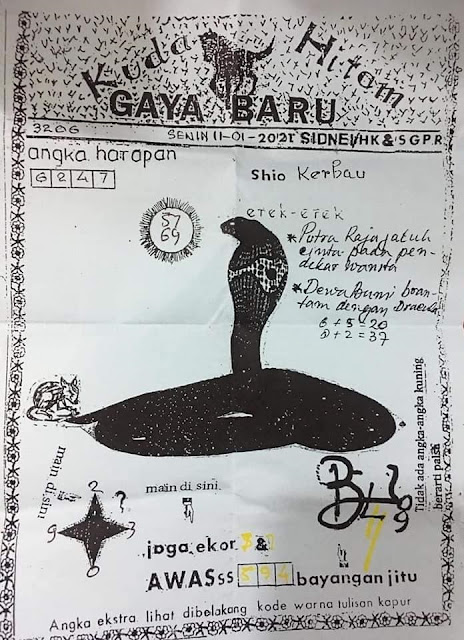 Kuda Hitam
GAYA BARU
3206
SENIN 11-01-2021 SIDNEI/HK & SGPR
angka harapan
6 2 4 7
Shio Kerbau
57
69
erek-erek
* Putra Raja jatuh
cinta pada pen-
dekar wanita
* Dewa Bumi bran-
tam dengan Dracula
6 + 5 = 20
+ 2 = 37
Tidak ada angka-angka kuning
berarti palsu
main di sini
2
?
9
3
0
main di sini
B
9
joga ekor &
AWASss 594 bayangan jitu
Angka ekstra lihat dibelakang kode warna tulisan kapur